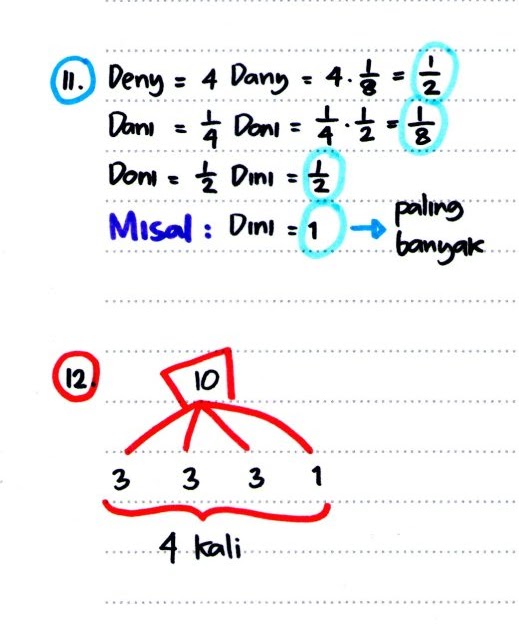 11. Deny = 4 Dany = 4 . 1/8 = 1/2
Dani = 1/4 Doni = 1/4 . 1/2 = 1/8
Doni = 1/2 Dini = 1/2
Misal : Dini = 1 → paling
banyak
12. 10
3 3 3 1
4 kali